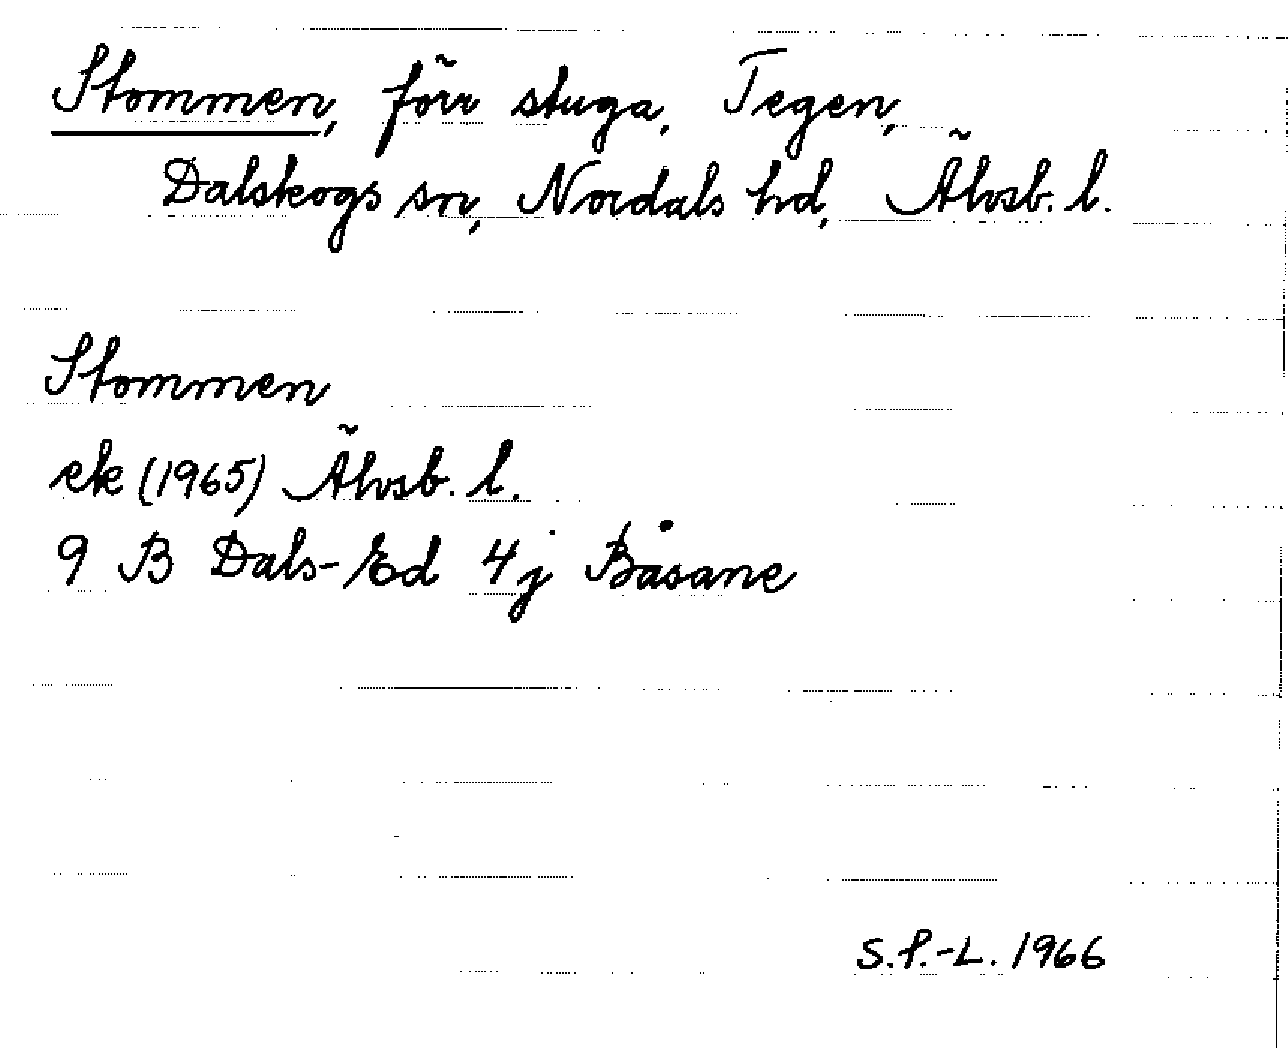 Stommen, förr stuga, Tegen,
Dalskogs sn, Nordals hd, Älvsb. l.
Stommen
ek (1965) Älvsb. l.
9 B Dals-Ed 4j Båsane
S.P.-L. 1966